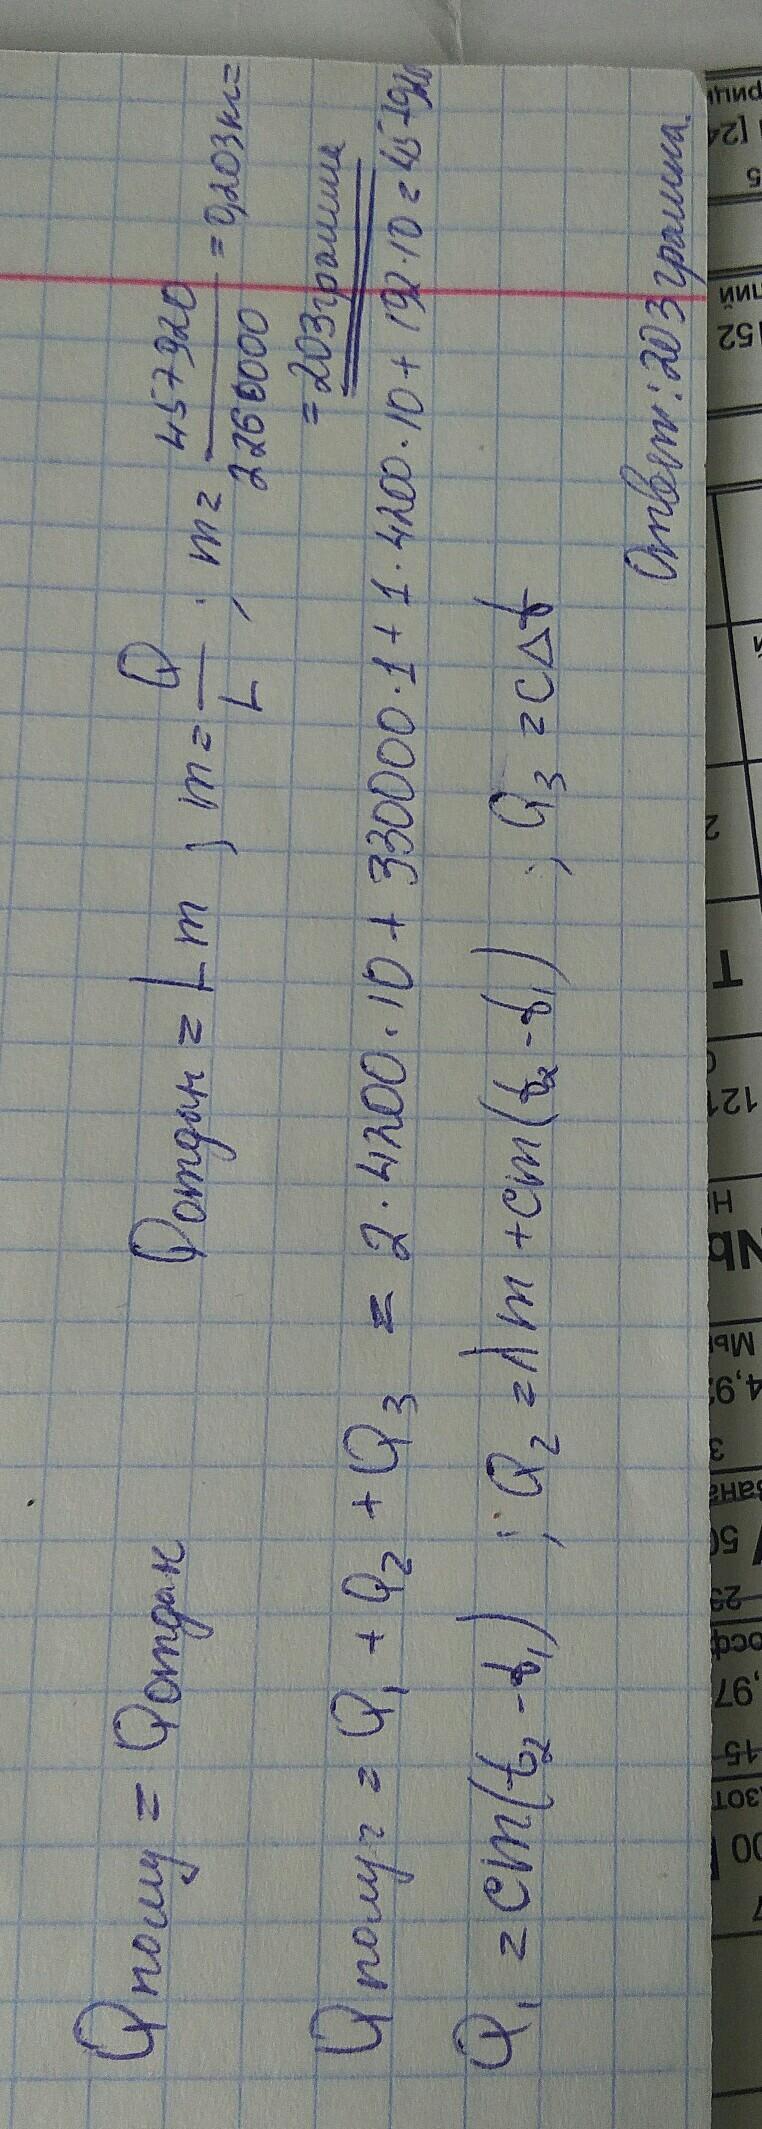 Qполуч = Qотдан Qотдан = Lm ; m = Q/L ; m = 457920/2260000 = 0,203 кг =
= 203 грамма
Qполуч = Q₁ + Q₂ + Q₃ = 2·4200·10 + 330000·1 + 1·4200·10 + 192·10 = 457920
Q₁ = cm(t₂ - t₁) ; Q₂ = λm + cm(t₂ - t₁) ; Q₃ = cΔt
Ответ: 203 грамма.